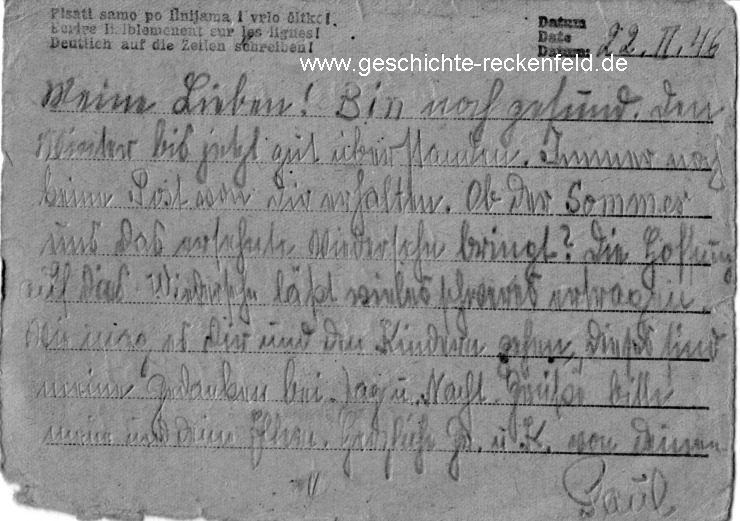 Pisati samo po linijama i vrlo čitko!
Ecrire lisiblement sur les lignes!
Deutlich auf die Zeilen schreiben!
Datum
Date
Datum: 22. II. 46
www.geschichte-reckenfeld.de
Meine Lieben! Bin noch gesund. Den
Winter bis jetzt gut überstanden. Immer noch
keine Post von Dir erhalten. Ob der Sommer
uns das ersehnte Wiedersehn bringt? Die Hoffnung
auf das Wiedersehn läßt vieles schweres ertragen.
Wie mag es Dir und den Kindern gehen, dieses sind
meine Gedanken bei Tag u. Nacht. Grüße bitte
meine und deine Eltern. Herzliche Gr. u. K. von deinem
Paul